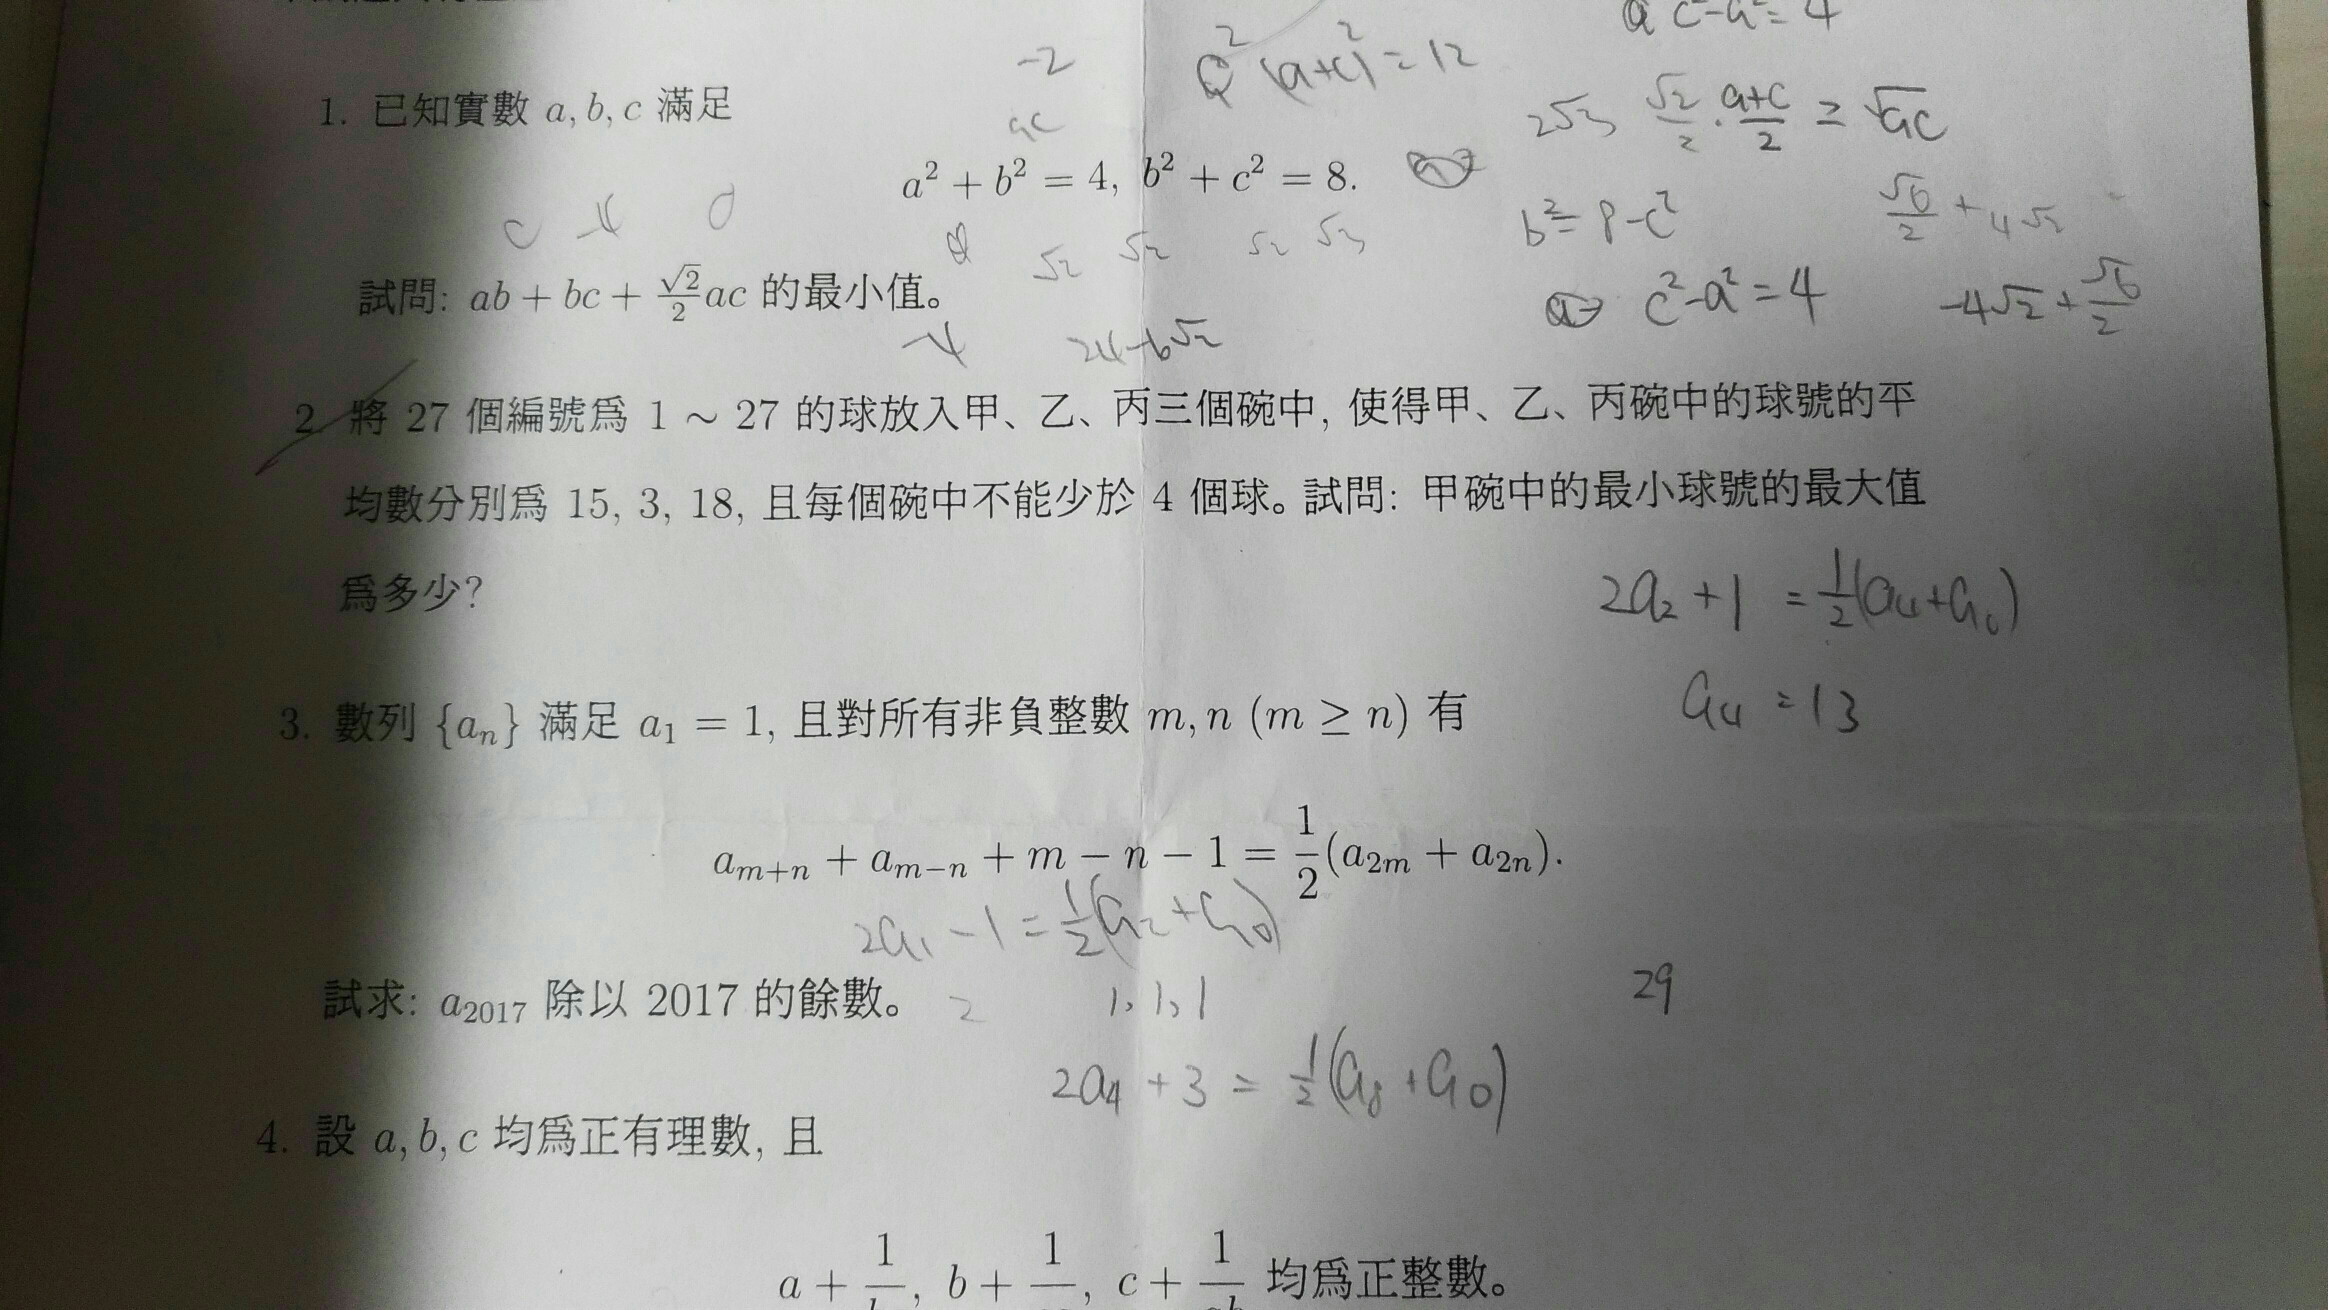 a c²-a²=4
-2
(a+c)²=12
1. 已知實數 a, b, c 滿足
ac
2√3 √2/2 · a+c/2 ≥ √ac
a² + b² = 4, b² + c² = 8.
c -4 0
√2 √2 √2 √3
b²=8-c²
√6/2 + 4√2
試問: ab + bc + √2/2 ac 的最小值。
c²-a²=4
-4√2+√6/2
-4 24-6√2
2. 將 27 個編號為 1 ~ 27 的球放入甲、乙、丙三個碗中, 使得甲、乙、丙碗中的球號的平
均數分別為 15, 3, 18, 且每個碗中不能少於 4 個球。試問: 甲碗中的最小球號的最大值
為多少?
2a₂+1 = 1/2(a₄+a₀)
a₄=13
3. 數列 {aₙ} 滿足 a₁ = 1, 且對所有非負整數 m, n (m ≥ n) 有
a_{m+n} + a_{m−n} + m − n − 1 = 1/2(a_{2m} + a_{2n}).
2a₁-1=1/2(a₂+a₀)
試求: a₂₀₁₇ 除以 2017 的餘數。
2 1,1,1
29
2a₄+3=1/2(a₈+a₀)
4. 設 a, b, c 均為正有理數, 且
a + 1/, b + 1/, c + 1/ab 均為正整數。